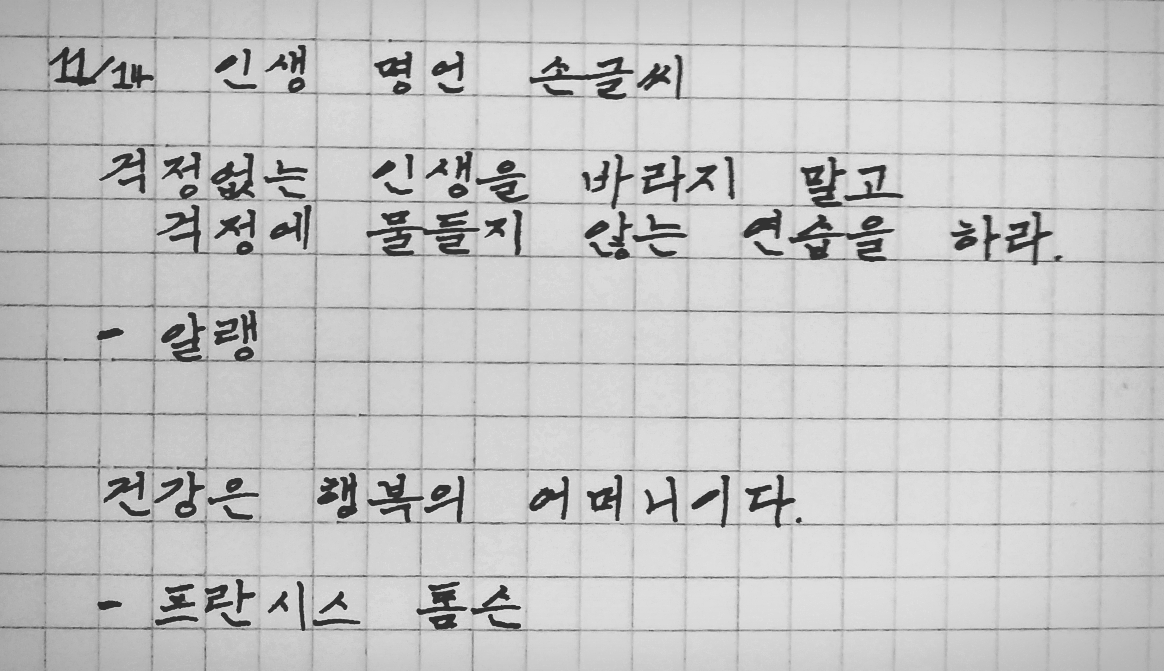 11/14 인생 명언 손글씨
걱정없는 인생을 바라지 말고
걱정에 물들지 않는 연습을 하라.
- 알랭
건강은 행복의 어머니이다.
- 프란시스 톰슨